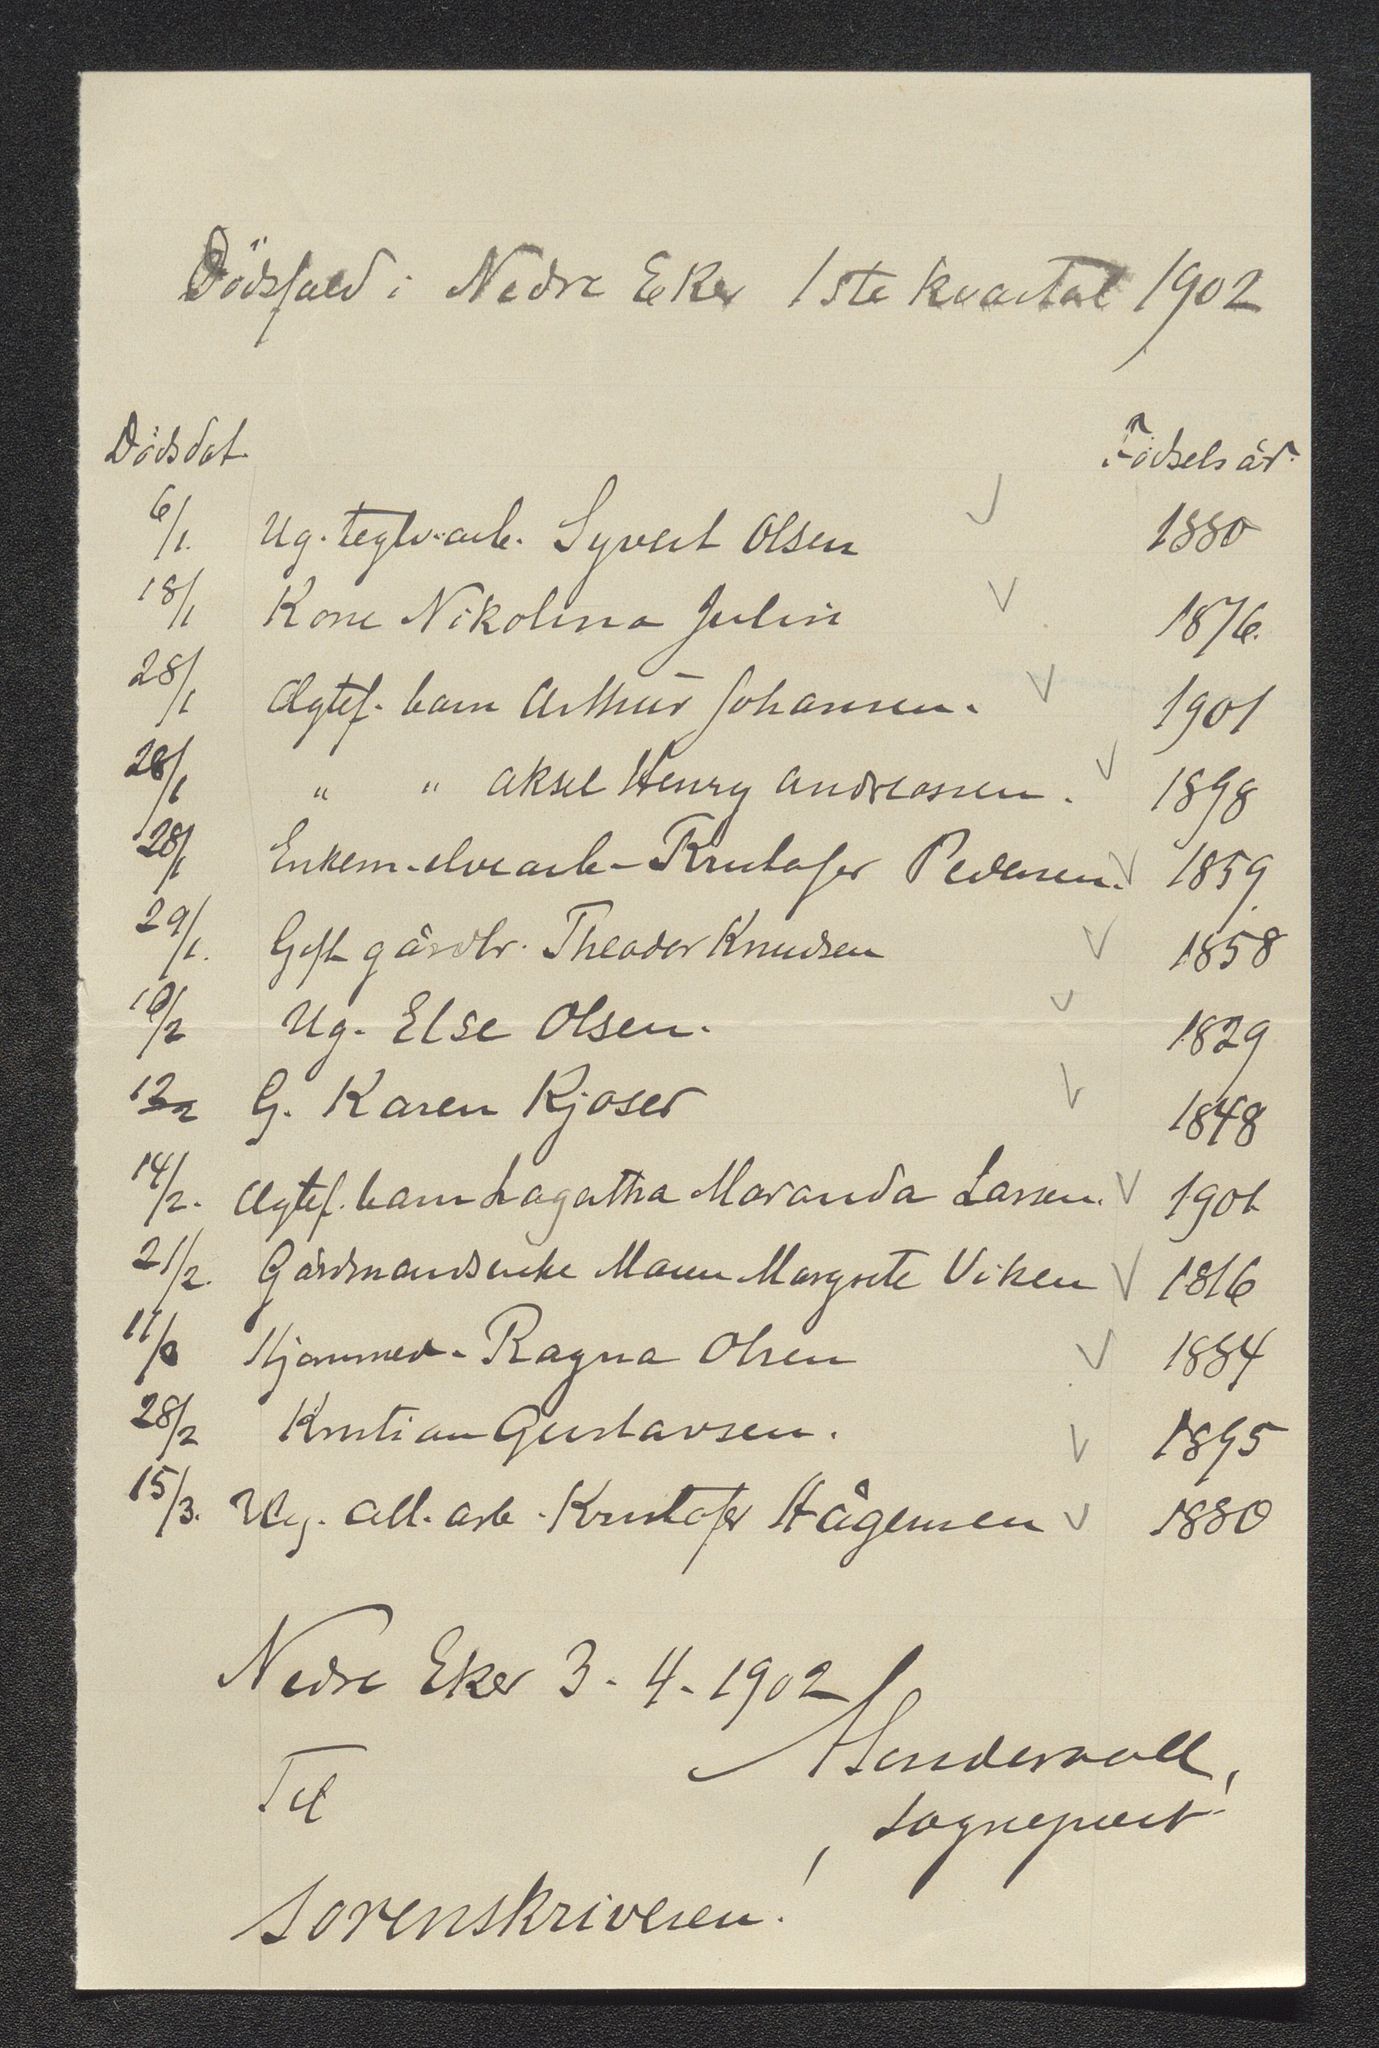 Dödsfald i Nedre Eker 1ste kvartal 1902
Dödsdat. Födselsår.
6/1. Ug. teglv. arb. Syvert Olsen 1880
18/1 Kone Nikolina Julin 1876.
28/1 Ægtef. barn Arthur Johansen. 1901
28/1 " " Aksel Henry Andreassen. 1898
28/1 Enkem. elvearb. Kristofer Pedersen. 1859
29/1. Gift gårdbr. Theodor Knudsen 1858
10/2 Ug. Else Olsen. 1829
12/2 G. Karen Kjöser 1848
14/2. Ægtef. barn Lagertha Maranda Larsen. 1901
21/2. Gårdmandsenke Maren Margrete Viken 1816
11/ Hjemmev. Ragna Olsen 1884
28/2 Kristian Gustavsen. 1895
15/3. Ug. cell. arb. Kristofer Hågensen 1880
Nedre Eker 3-4-1902
Til
sogneprest
sorenskriveren!